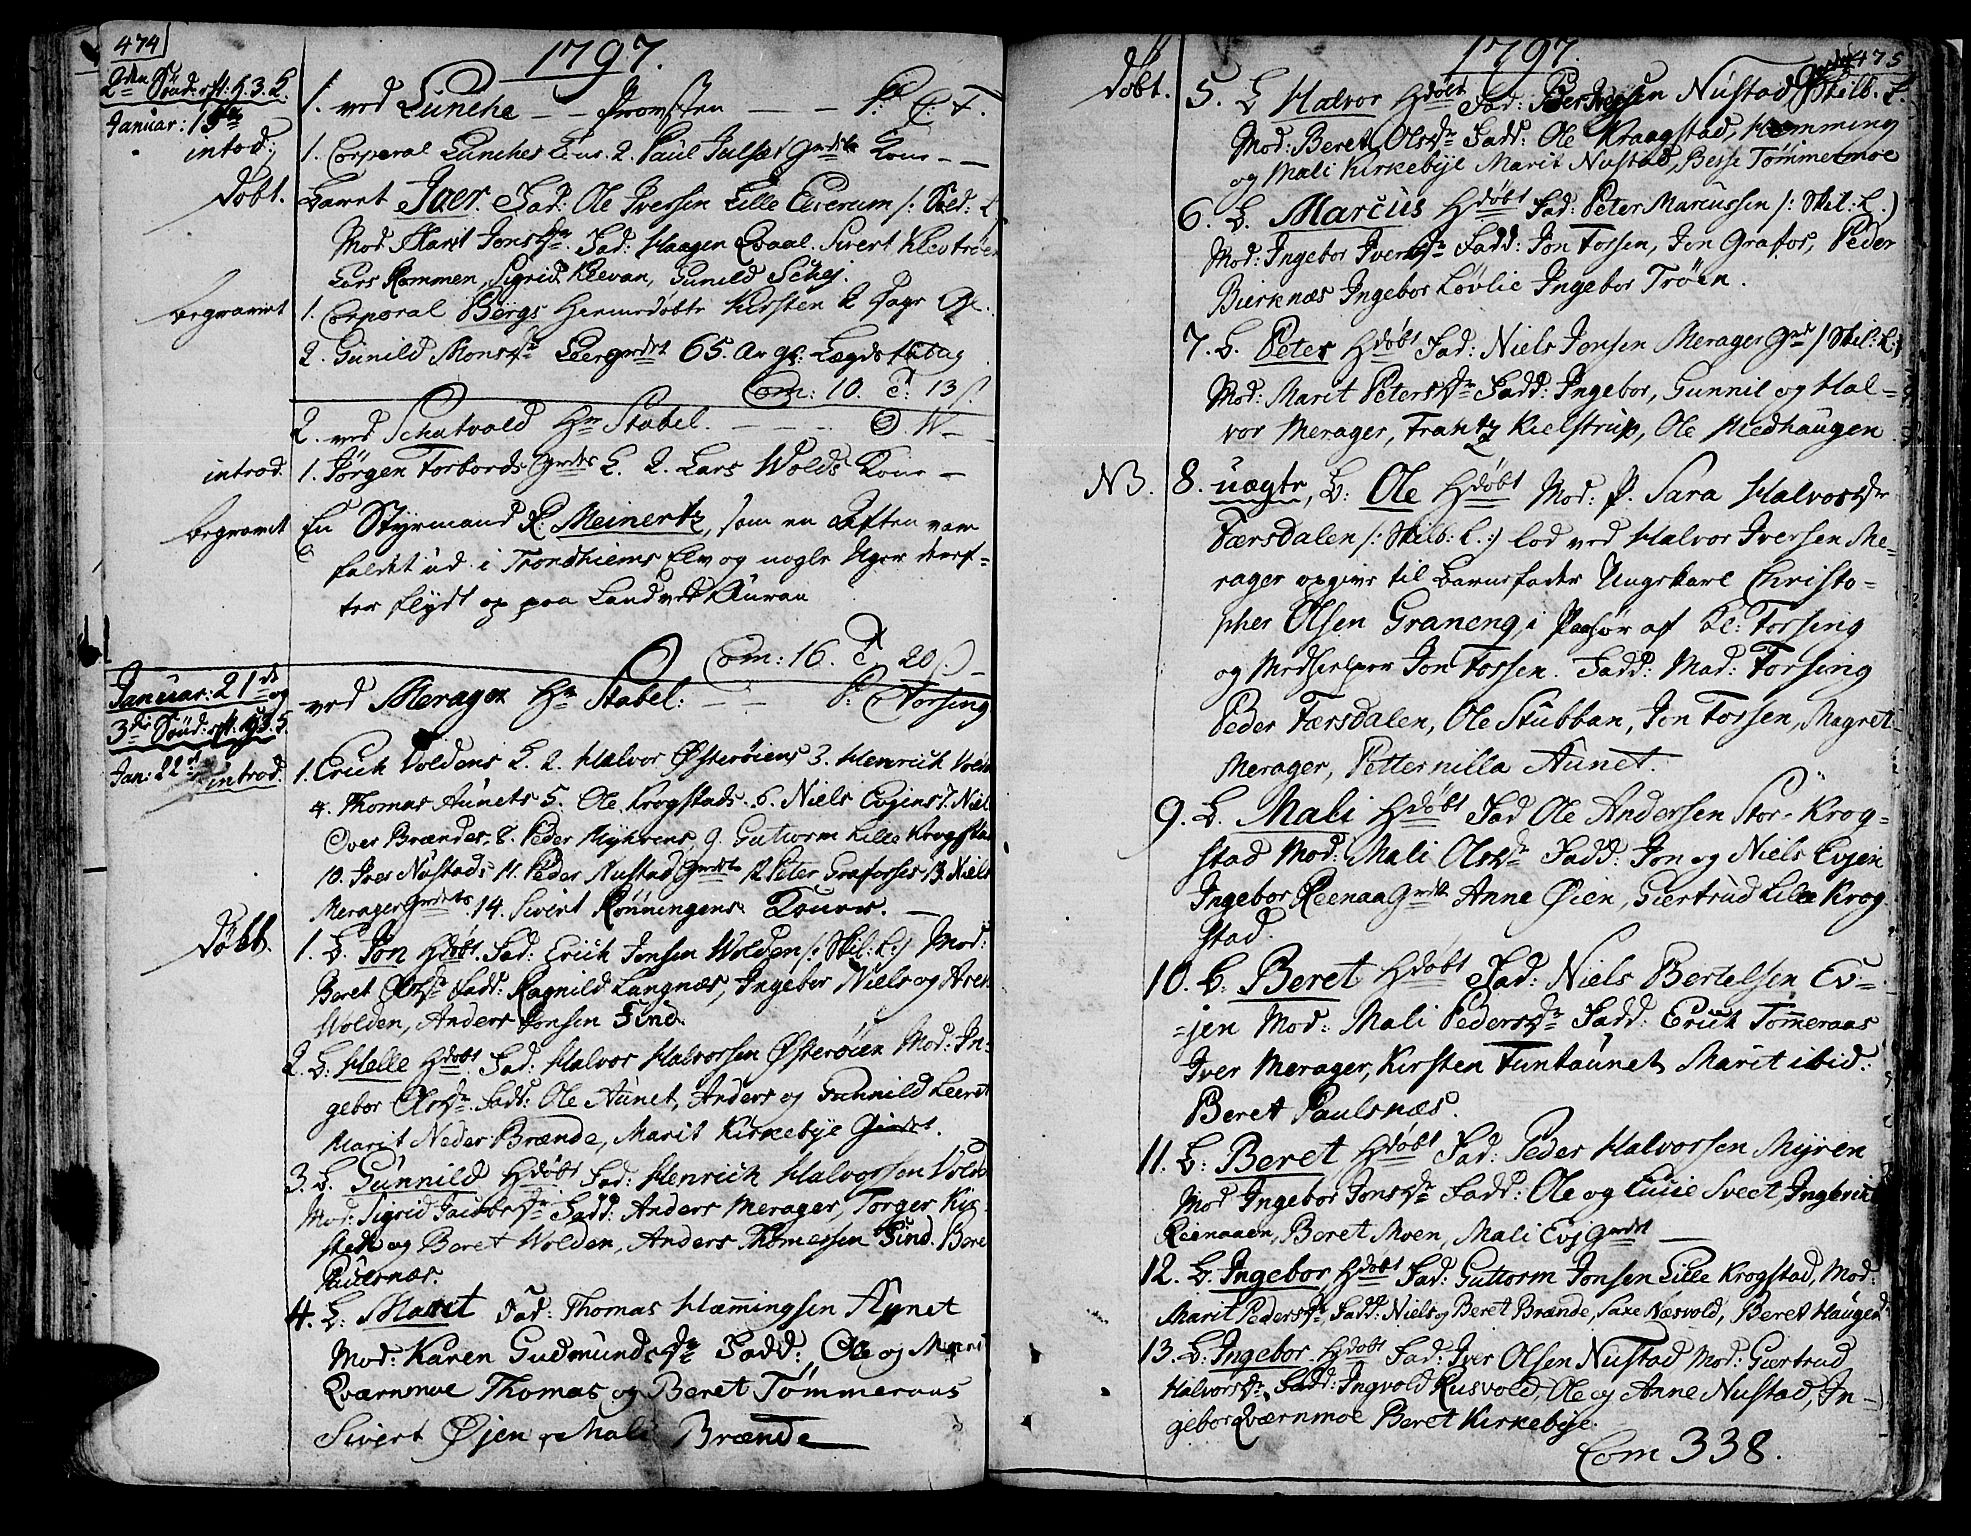 474
1797.
2den Sønd: eft: h. 3. K.
Januar: 15de
1. ved Lunche — — Provsten — — P. C. T.
introd:
1. Corporal Lunches Kone. 2. Paul Julset Gmdts Kone — —
døbt.
Barnet Jaer. Fad: Ole Iversen Lille Elverum /: Skil: L.
Mod Marit Jonsdr. Fad: Haagen Qvaal. Sivert Kleotrøen
Lars Rommen, Sigrid Klevan, Gunild Schej.
begravet
1. Corporal Bergs hiemedøbte Kirsten 2 Dage Gl.
2. Gunild Monsdr Leergmdet 65. Ar gl: Lægdslem
Com: 10. T: 13 ß
2. ved Schatvold Hr Stabel. — — — —
introd.
1. Jørgen Forbords Gmdts K. 2. Lars Wolds Kone —
begravet
En Styrmand R: Meinertz, som en Aften var
faldet ud i Trondhiems Elv og nogle Uger deref-
ter flydt op paa Land ved Auran
Com: 16. T 20 ß
Januar: 21de og
3die Sønd: eft: h. 3. K.
Jan: 22de
ved Merager Hr Stabel: — — P. C Forsing
introd.
1. Erich Voldens K. 2. Halvor Østerøiens 3. Henrich Volds
4. Thomas Aunets 5. Ole Krogstads. 6. Niels Evjens 7. Niels
Over Brændes, 8. Peder Myhrens, 9. Guttorm Lille Krogstads
10. Iver Nustads 11. Peder Nustad Gmdts 12. Peter Graforses 13. Niels
Meragergmdets 14. Sivert Rønningens Koner. —
døbt.
1. B. Jon Hdøbt. Fad: Erich Jonsen Wolden /: Skil: L:/ Mod:
Beret Olsdr Fadd: Ragnild Langnæs, Ingebor Niels og Aren
Wolden, Anders Jonsen Find.
2. B. Helle Hdøbt. Fad: Halvor Halvorsen Østerøien Mod: In-
gebor Olsdr. Fadd: Ole Aunet, Anders og Gunnild Leeret
Marit Neder Brænde, Marit Kirkebye Gmdet.
3. B. Gunnild Hdøbt Fad: Henrich Halvorsen Vold
Mod: Sigrid Jacobsdr Fadd: Anders Merager, Torger Kir-
sted og Beret Wolden, Anders Thomessen Find. Beret
Paulsnæs.
4. B. Marit Fad: Thomas Hæmingsen Aunet
Mod: Karen Gudmundsdr Fadd: Ole og Marit
Qværnmoe Thomas og Beret Tømmeraas
Sivert Øjen og Mali Brænde
475
1797.
døbt.
5. B Halvor Hdøbt Fad: Peder Nustad Gmd Skilb. L.
Mod: Beret Olsdr Fadd: Ole Kraagstad, Hemming
og Mali Kirkebye Marit Nustad, Besse Tømmermoe
6. B. Marcus Hdøbt Fad: Peter Marcussen /: Skil: L.)
Mod: Ingebor Iversdr Fadd: Jon Fossen, Jon Grafos, Peder
Bierknæs Ingebor Løvlie Ingebor Trøen.
7. B. Peter Hdøbt Fad: Niels Jensen Merager Gmd /: Skil: L:/
Mod: Marit Petersdr Fadd: Ingebor, Gunnil og Hal-
vor Merager, Frantz Kielstrup, Ole Medhaugen
NB.
8. uægte, B: Ole Hdøbt Mod: P. Sara Halvorsdr
Færsdalen /: Skilb: L.:/ lod ved Halvor Iversen Me-
rager opgive til Barnefader Ungekarl Christo-
pher Olsen Graneng, i Paahør af Kl: Forsing
og Medhielper Jon Fossen. Fadd: Mad: Forsing
Peder Færsdalen, Ole Stubban, Jon Fossen, Magret
Merager, Petternilla Aunet.
9. B. Mali Hdøbt Fad Ole Andersen Stor-Krog-
stad Mod: Mali Olsdr Fadd: Jon og Niels Evjen
Ingebor Reenaagmdt Anne Øien, Giertrud Lille Krog
stad.
10. B. Beret Hdøbt Fad: Niels Bertelsen Ev-
-jen Mod: Mali Pedersdr Fadd: Erich Tømeraas
Iver Merager, Kirsten Funtaunet Marit ibid:
Beret Paulsnæs.
11. B: Beret Hdøbt Fad: Peder Halvorsen Myren
Mod Ingebor Jonsdr Fadd: Ole og Lucie Sveet, Ingbrich
Reenaaen, Beret Moen, Mali Evjgmdet —
12. B. Ingebor, Hdøbt Fad: Guttorm Jonsen Lille Krogstad, Mod:
Marit Pedersdr Fadd: Niels og Beret Brænde, Saxe Næsvold, Beret Haugen
13. B: Ingebor. Hdøbt Fad: Iver Olsen Nustad Mod: Giertrud
Halvorsdr. Fadd: Ingvold Rusvold, Ole og Anne Nustad, In-
gebor Qværnmoe Beret Kirkebye.
Com 338.